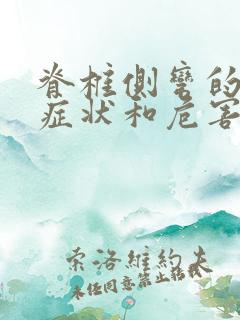 脊柱侧弯的
症状和危害
索洛維約夫
未经同意禁止搭载